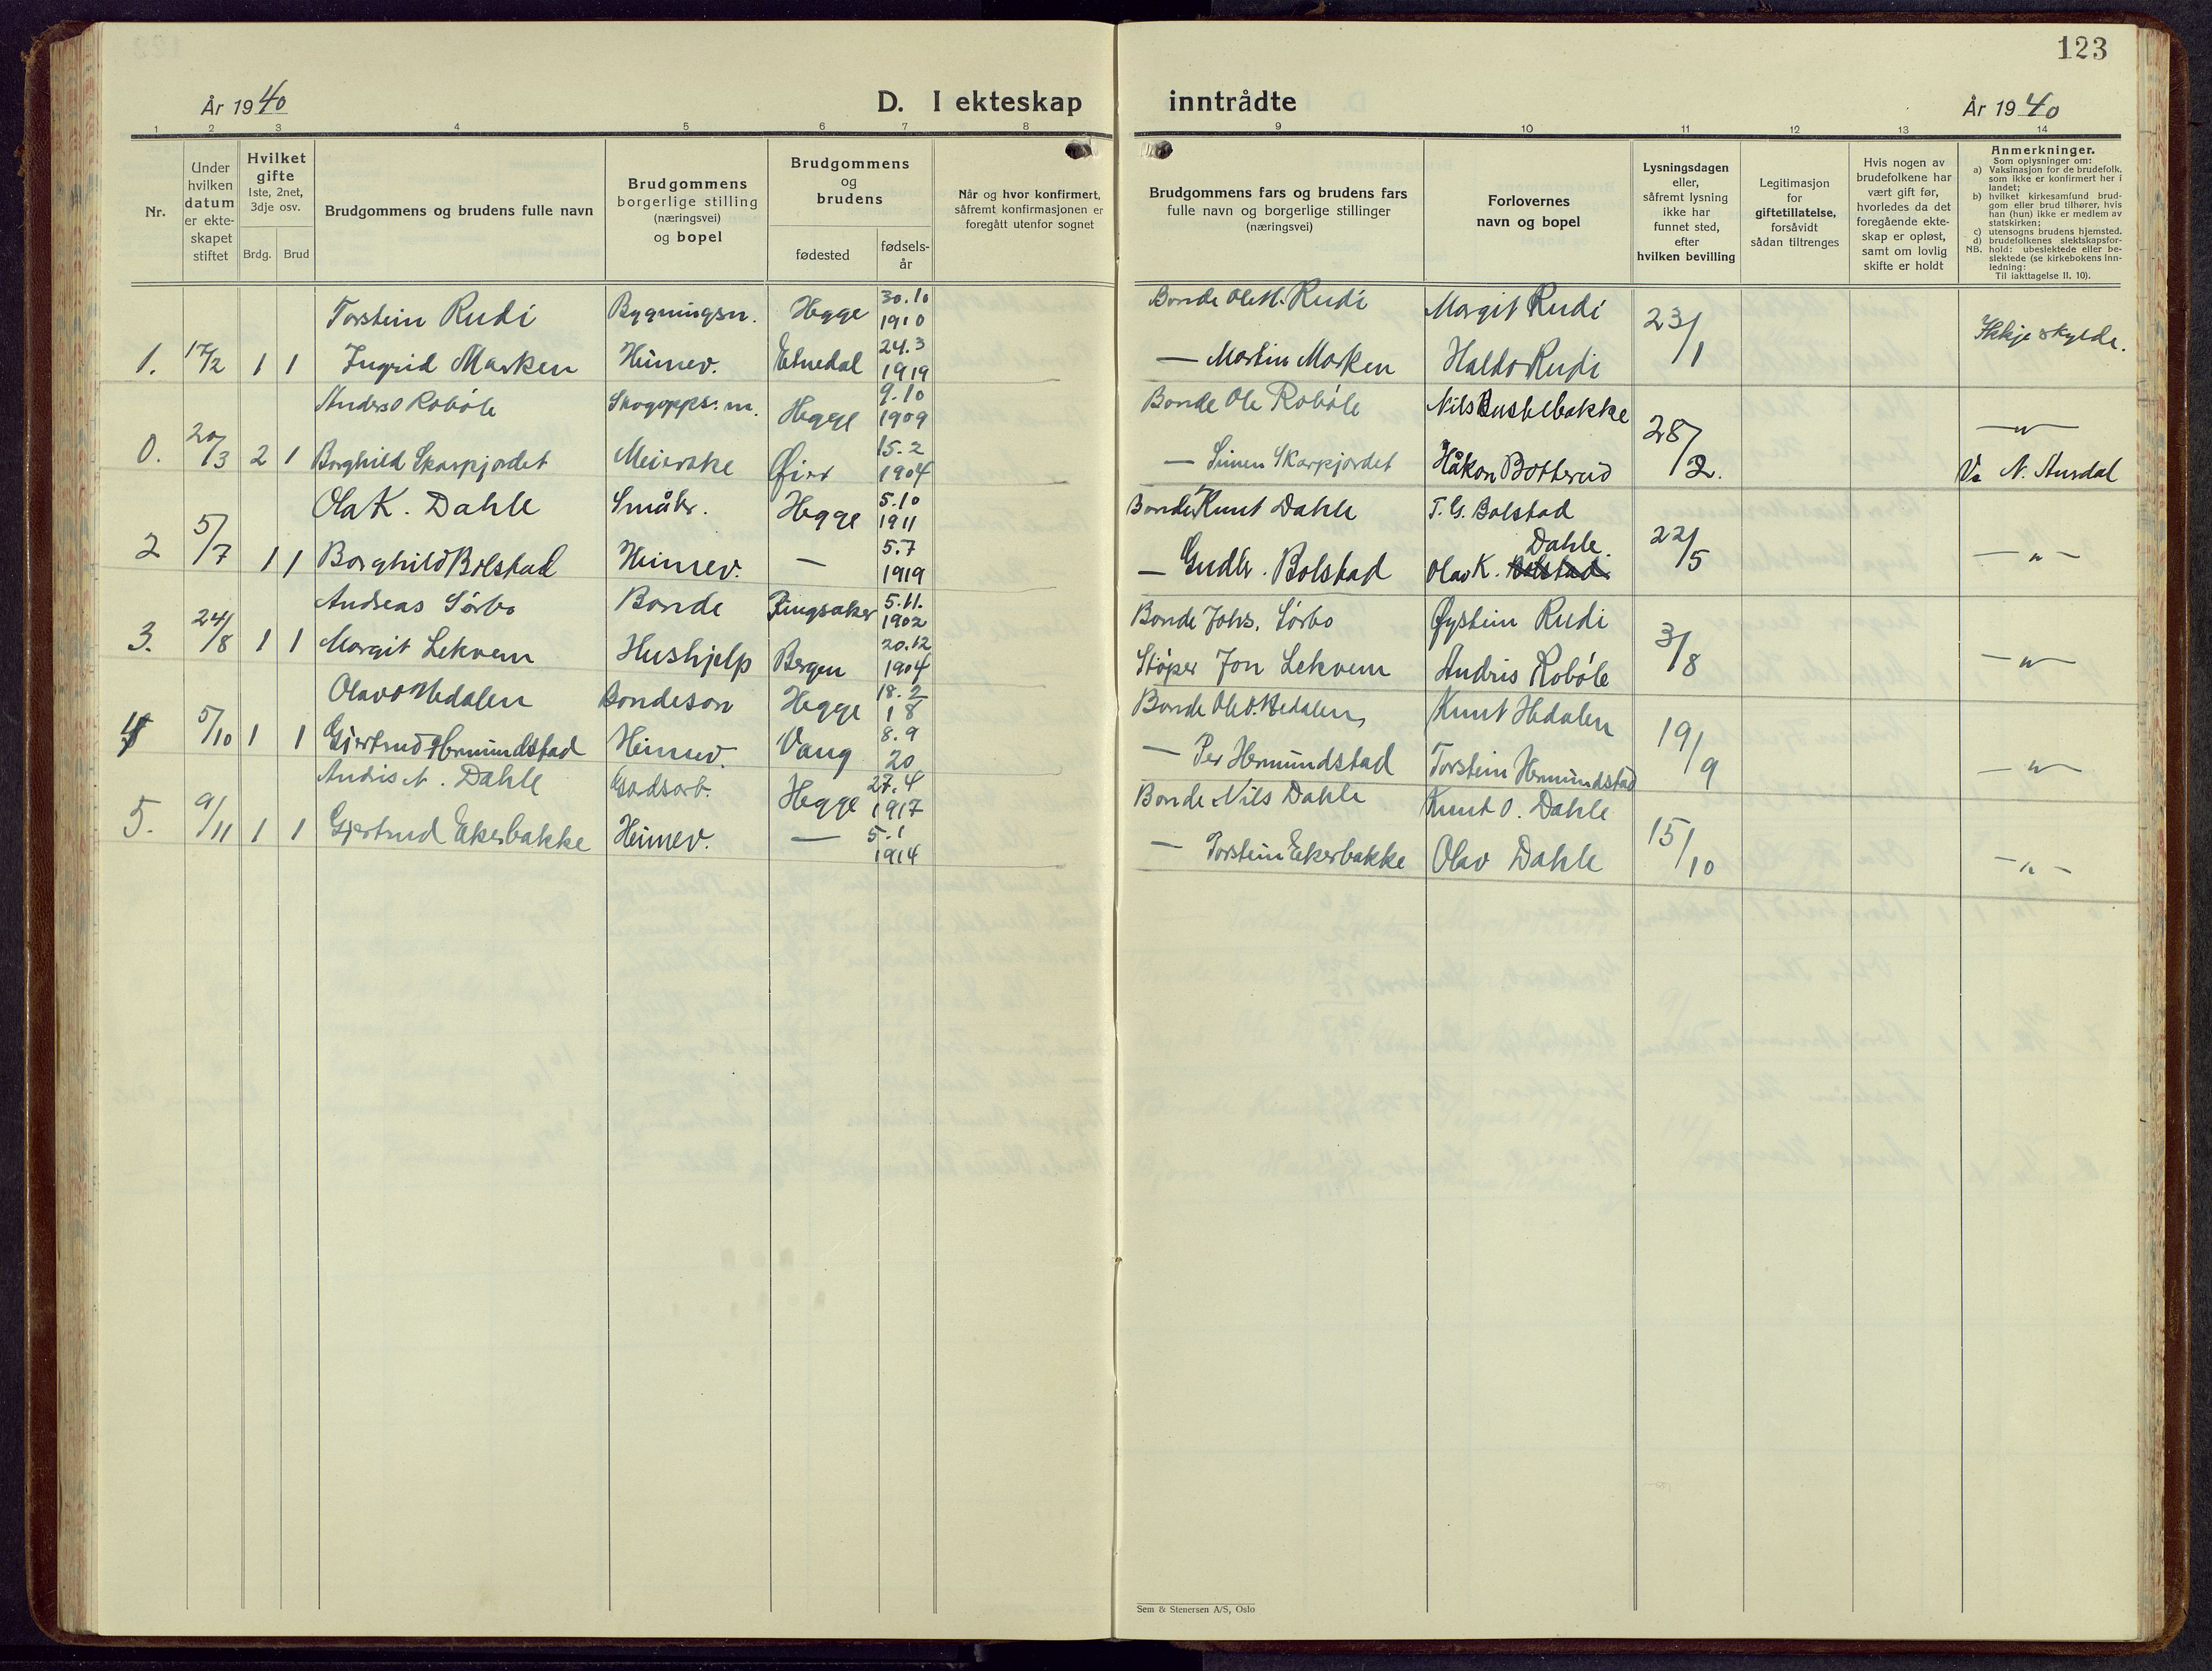 123
År 1940
D. I ekteskap inntrådte
År 1940
1 2 3 4 5 6 7 8 9 10 11 12 13 14
Nr.
Under hvilken datum er ekte-skapet stiftet
Hvilket gifte
1ste, 2net, 3dje osv.
Brdg. Brud
Brudgommens og brudens fulle navn
Brudgommens borgerlige stilling (næringsvei) og bopel
Brudgommens og brudens
fødested
fødsels-år
Når og hvor konfirmert, såfremt konfirmasjonen er foregått utenfor sognet
Brudgommens fars og brudens fars fulle navn og borgerlige stillinger (næringsvei)
Forlovernes navn og bopel
Lysningsdagen eller, såfremt lysning ikke har funnet sted, efter hvilken bevilling
Legitimasjon for giftetillatelse, forsåvidt sådan tiltrenges
Hvis nogen av brudefolkene har vært gift før, hvorledes da det foregående ekte-skap er opløst, samt om lovlig skifte er holdt
Anmerkninger.
Som oplysninger om:
a) Vaksinasjon for de brudefolk, som ikke er konfirmert her i landet;
b) hvilket kirkesamfund brud-gom eller brud tilhører, hvis han (hun) ikke er medlem av statskirken;
c) utensogns brudens hjemsted.
d) brudefolkenes slektskapsfor-
NB. hold: ubeslektede eller be-slektede (se kirkebokens inn-ledning:
Til iakttagelse II, 10).
Torstein Rudi Bygningsn. Hegge 30.10 1910 Bonde Ole M. Rudi Margit Rudi 23/1 Ikkje skylde.
1. 17/2 1 1 Ingrid Marken Heimev. Etnedal 24.3 1919 — Martin Marken Haldo Rudi
Anders O Robøle Skogopps.m. Hegge 9.10 1909 Bonde Ole Robøle Nils Bushelbakke 28/2. —"—
0. 20/3 2 1 Borghild Skarpjordet Meierske Øier 15.2 1904 — Simen Skarpjordet Håkon Botterud N. Aurdal
Ola K. Dahle Småbr. Hegge 5.10 1911 Bonde Knut Dahle T. G. Bolstad
2 5/7 1 1 Borghild Bolstad Heimev. — 5.7 1919 — Gudbr. Bolstad Olav K. Bolstad Dahle. 22/5 —"—
Andreas Sørbo Bonde Ringsaker 5.11. 1902 Bonde Johs. Sørbo Øystein Rudi
3. 24/8 1 1 Margit Lekvem Hushjelp Bergen 20.12 1904 Støper Jon Lekvem Andris Robøle 3/8 —"—
Olav O Hedalen Bondeson Hegge 18.2 18 Bonde Ole O. Hedalen, Knut Hedalen
4 5/10 1 1 Gjertrud Hermundstad Heimev. Vang 8.9 20 — Per Hermundstad Torstein Hermundstad 19/9 —"—
Andris N. Dahle Gardsarb. Hegge 27.4 1917 Bonde Nils Dahle Knut O. Dahle
5. 9/11 1 1 Gjertrud Ekerbakke Heimev. — 5.1 1914 — Torstein Ekerbakke Olav Dahle 15/10 —"—
Sem & Stenersen A/S, Oslo